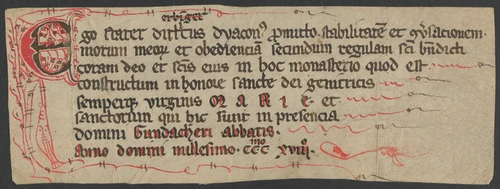 erbiger
Ego frater dictus dyaconꝰ promitto stabilitatē et ꝯuersacionem
morum meoꝝ et obedienciā secundum regulam scī bn̄dicti
coram deo et scīs eius in hoc monasterio quod est
constructum in honore sancte dei genitricis
semperqꝫ virginis MARIE et
sanctorum qui hic sunt in presencia
domini Gundacheri abbatis.
Anno domini millesimo. CCCmo XViij